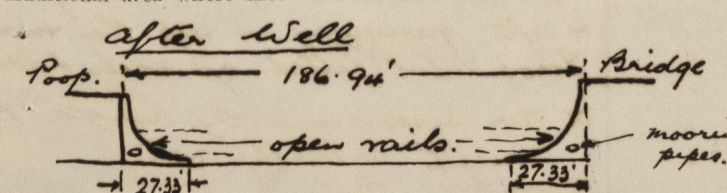 After Well
Poop. 186.94' Bridge
open rails. moorin
pipes.
27.33' 27.33'